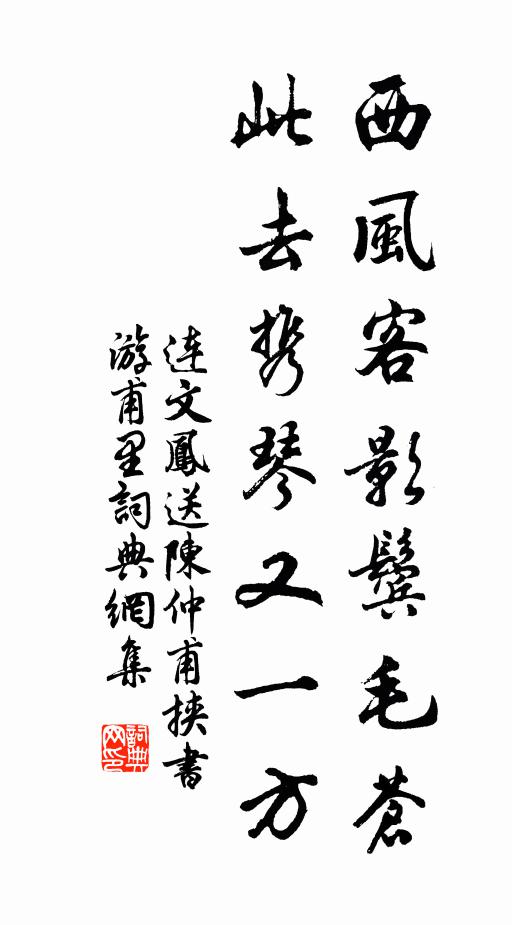 西風客影鬢毛蒼
此去携琴又一方
连文鳳送陳仲甫挾書
游甫里詞典網集
詞典网印